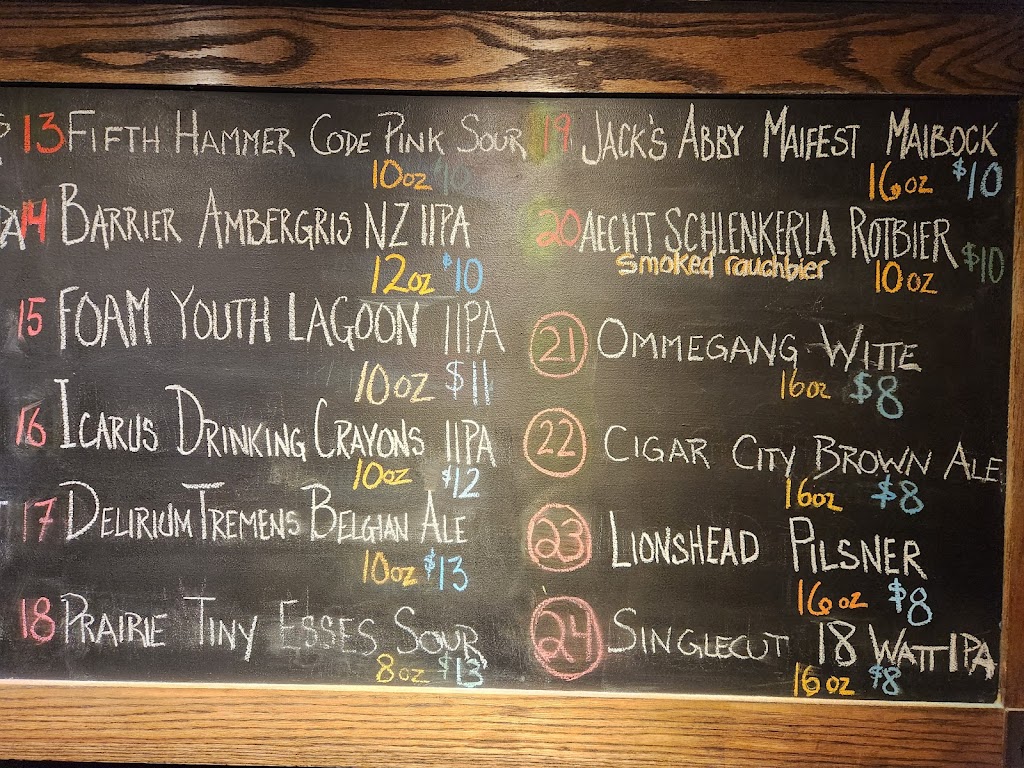 13 FIFTH HAMMER CODE PINK SOUR
10oz
14 BARRIER AMBERGRIS NZ IIPA
12oz $10
15 FOAM YOUTH LAGOON IIPA
10oz $11
16 ICARUS DRINKING CRAYONS IIPA
10oz $12
17 DELIRIUM TREMENS BELGIAN ALE
10oz $13
18 PRAIRIE TINY ESSES SOUR
8oz $13
19 JACK'S ABBY MAIFEST MAIBOCK
16oz $10
20 AECHT SCHLENKERLA ROTBIER
smoked rauchbier 10oz $10
21 OMMEGANG WITTE
16oz $8
22 CIGAR CITY BROWN ALE
16oz $8
23 LIONSHEAD PILSNER
16oz $8
24 SINGLECUT 18 WATT IPA
16oz $8